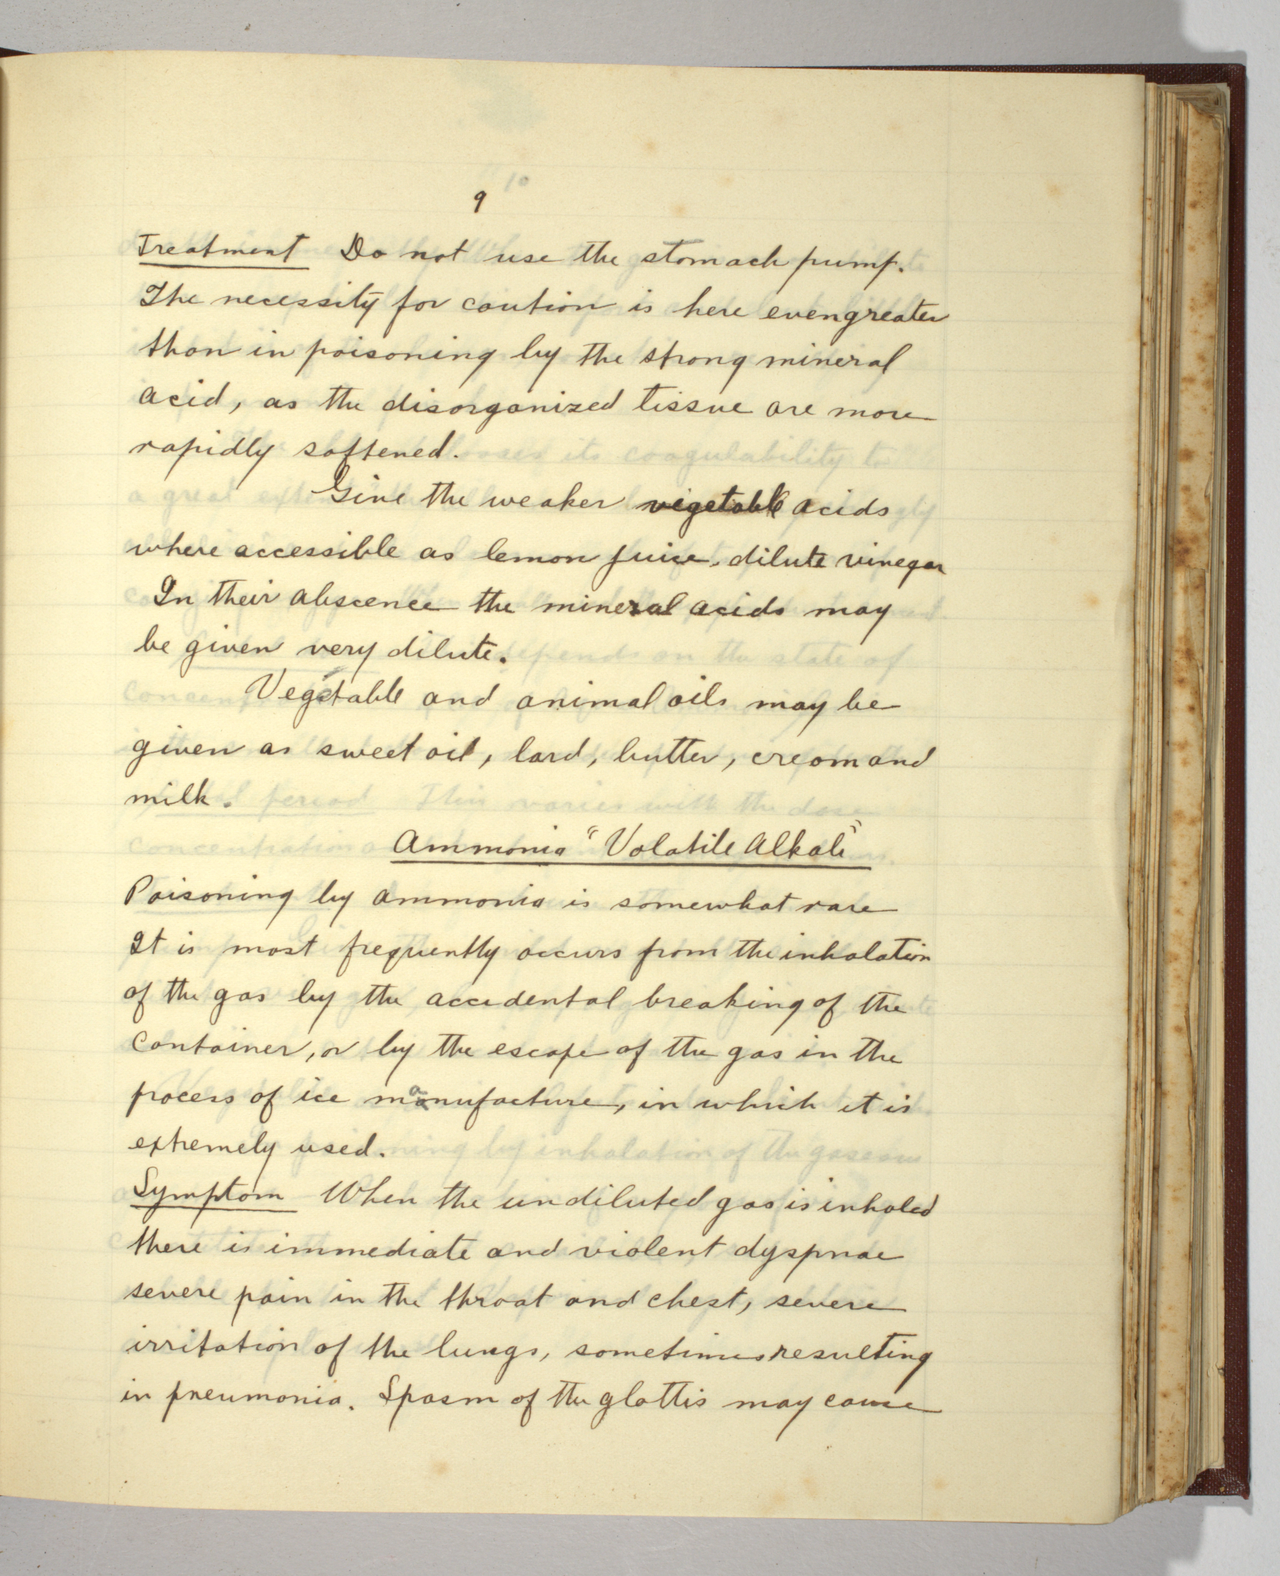 9
Treatment Do not use the stomach pump.
The necessity for caution is here even greater
than in poisoning by the strong mineral
acid, as the disorganized tissue are more
rapidly softened.
Give the weaker vegetable acids
where accessible as lemon juice, dilute vinegar
In their abscence the mineral acids may
be given very dilute.
Vegetable and animal oils may be
given as sweet oil, lard, butter, cream and
milk.
Ammonia "Volatile Alkali"
Poisoning by ammonia is somewhat rare
It is most frequently occurs from the inhalation
of the gas by the accidental breaking of the
container, or by the escape of the gas in the
process of ice manufacture, in which it is
extremely used.
Symptom When the undiluted gas is inhaled
there is immediate and violent dyspnae
severe pain in the throat and chest, severe
irritation of the lungs, sometimes resulting
in pneumonia. Spasm of the glottis may cause